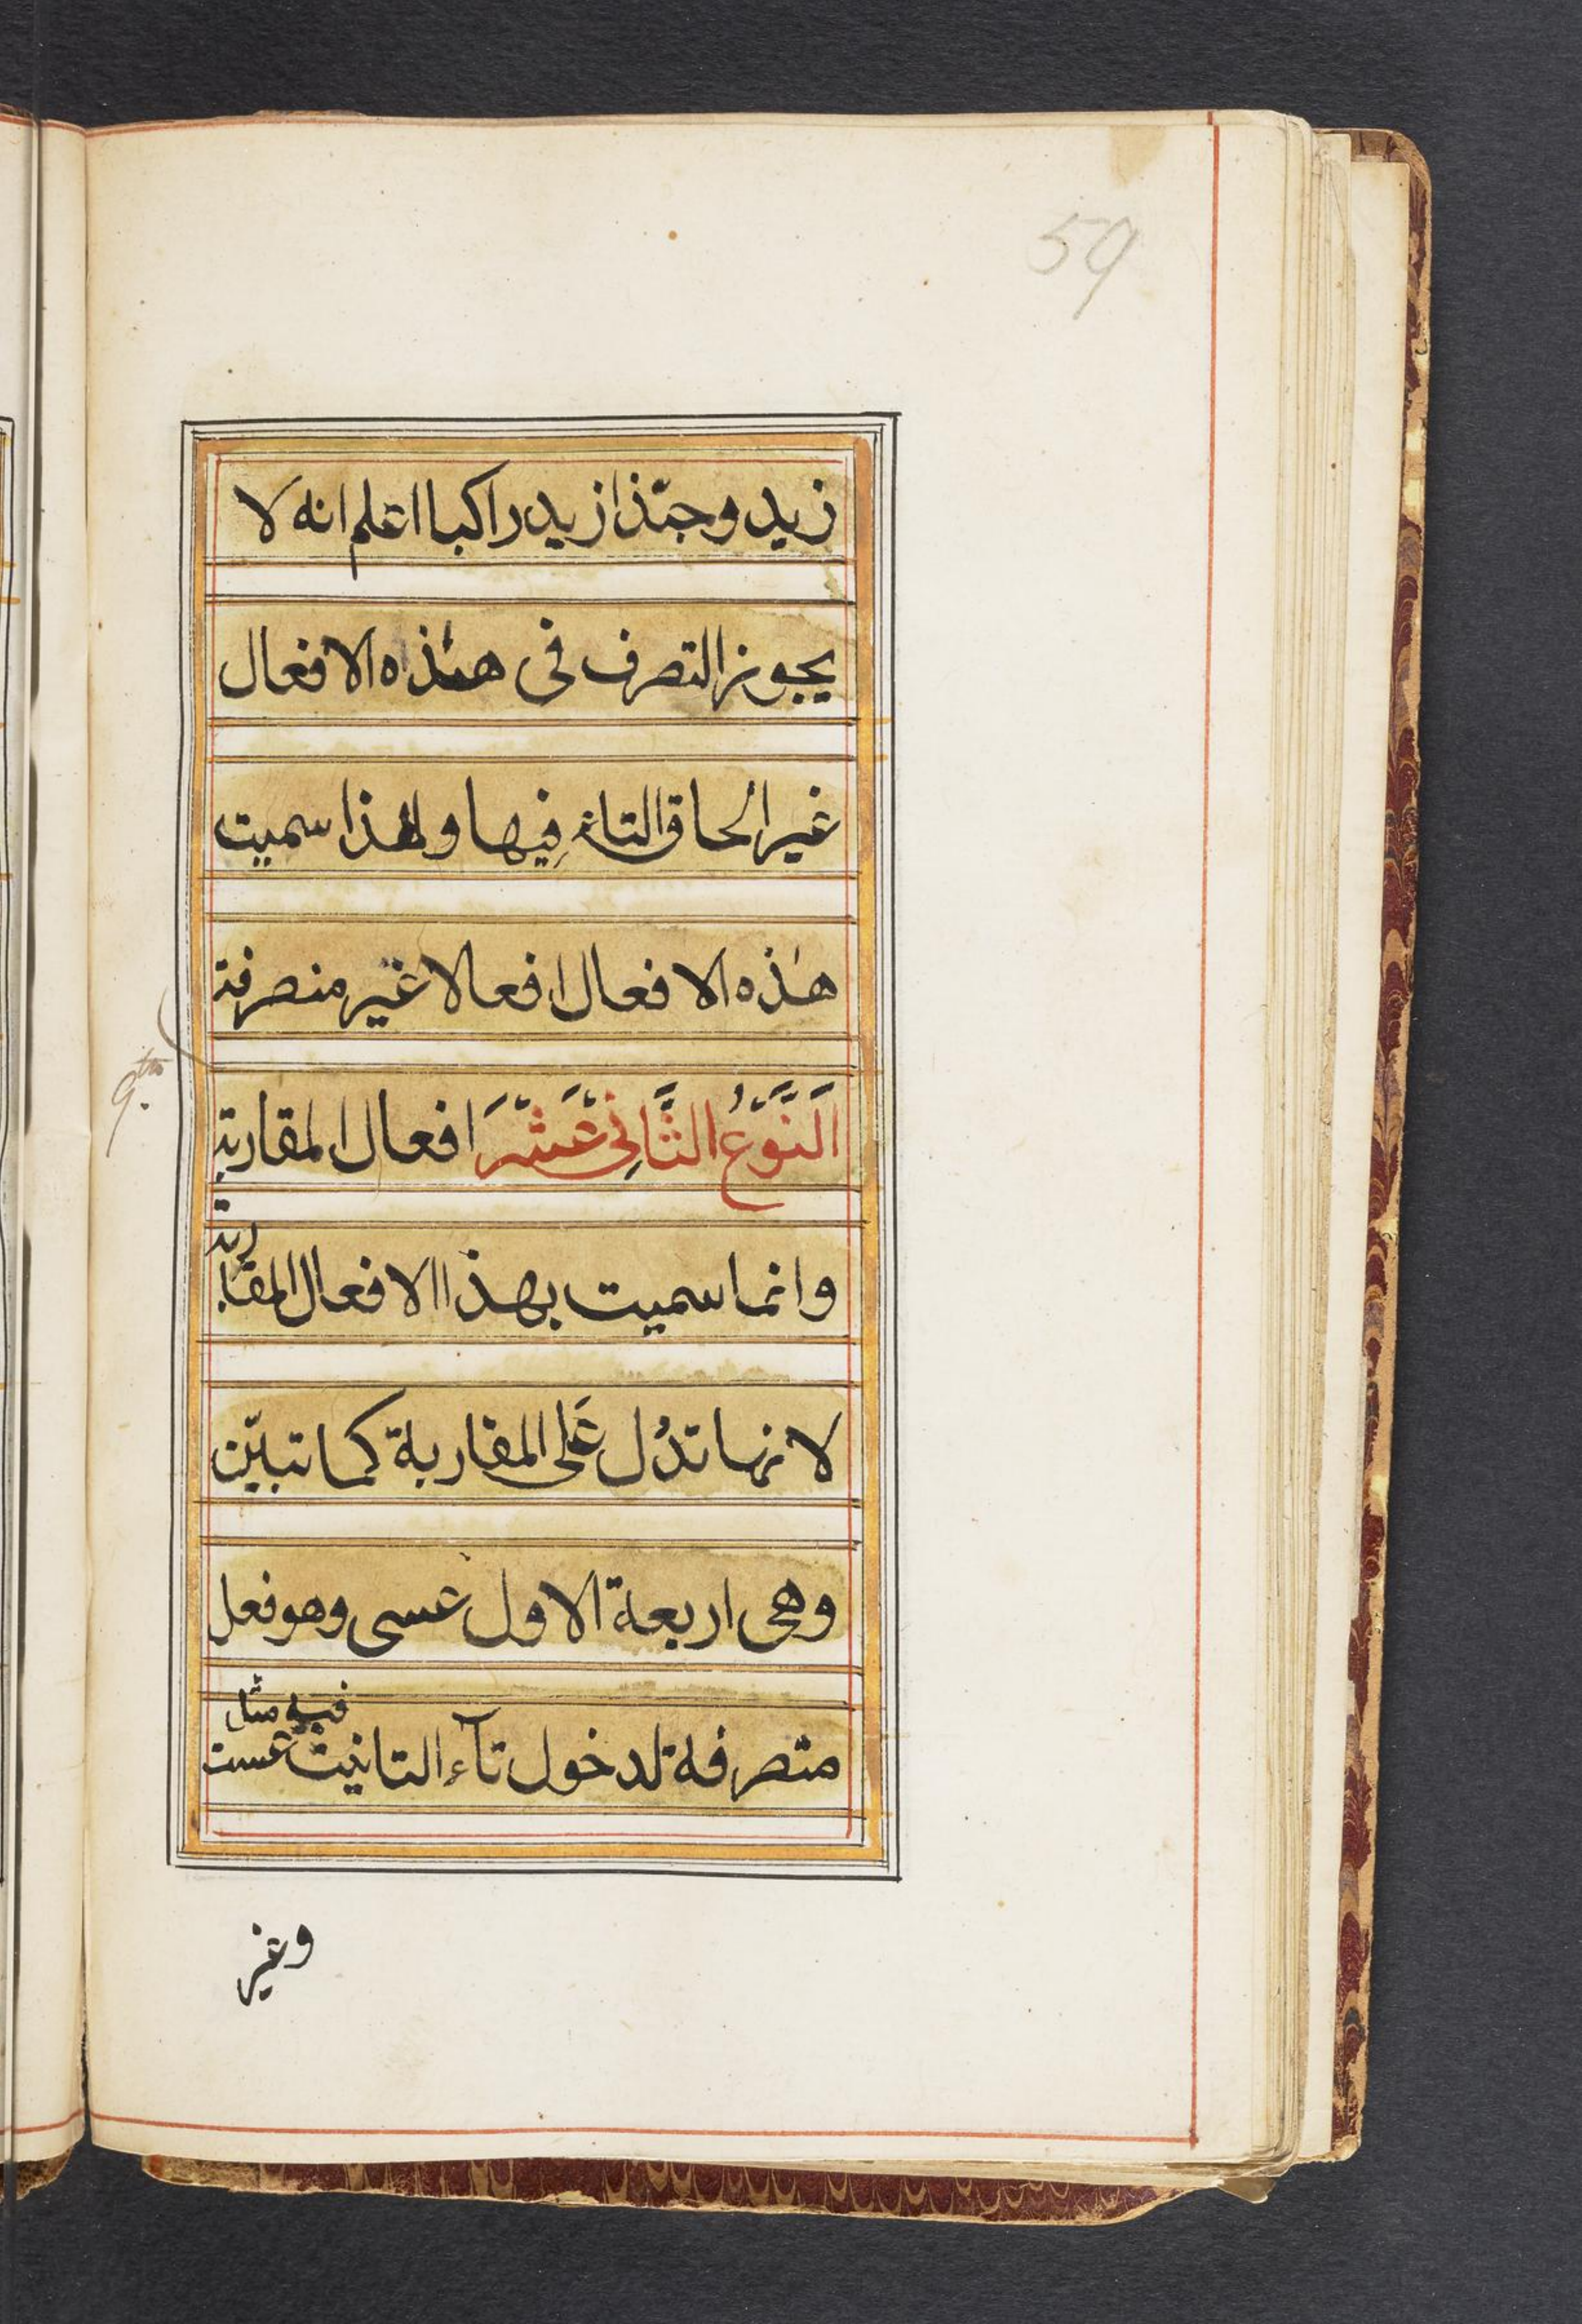 59
زيد وحبّذا زيد راكبا اعلم انه لا
يجوز التصرف فى هذه الافعال
غير الحاق التاء فيها ولهذا سميت
هذه الافعال افعالا غير منصرفة
9th.
اَلنَّوْعُ الثَّانِى عَشَرَ افعال المقاربة
وانما سميت بهذا الافعال المقاربة
لانها تدُل عَلى المقاربة كما تبيّن
وهى اربعة الاول عسى وهو فعل
متصرفة لدخول تآء التانيث فيه مثل عست
وغير